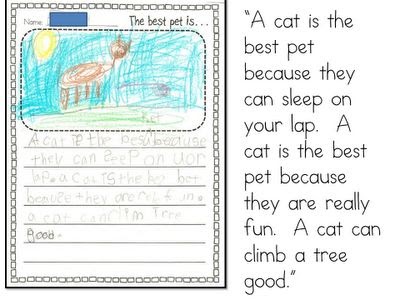 Name
The best pet is...
A cat is the
they can seep on uor
lap. a cat is the bes bet
a cat can clim tree
good.
"A cat is the
best pet
because they
can sleep on
your lap. A
cat is the best
pet because
they are really
fun. A cat can
climb a tree
good."